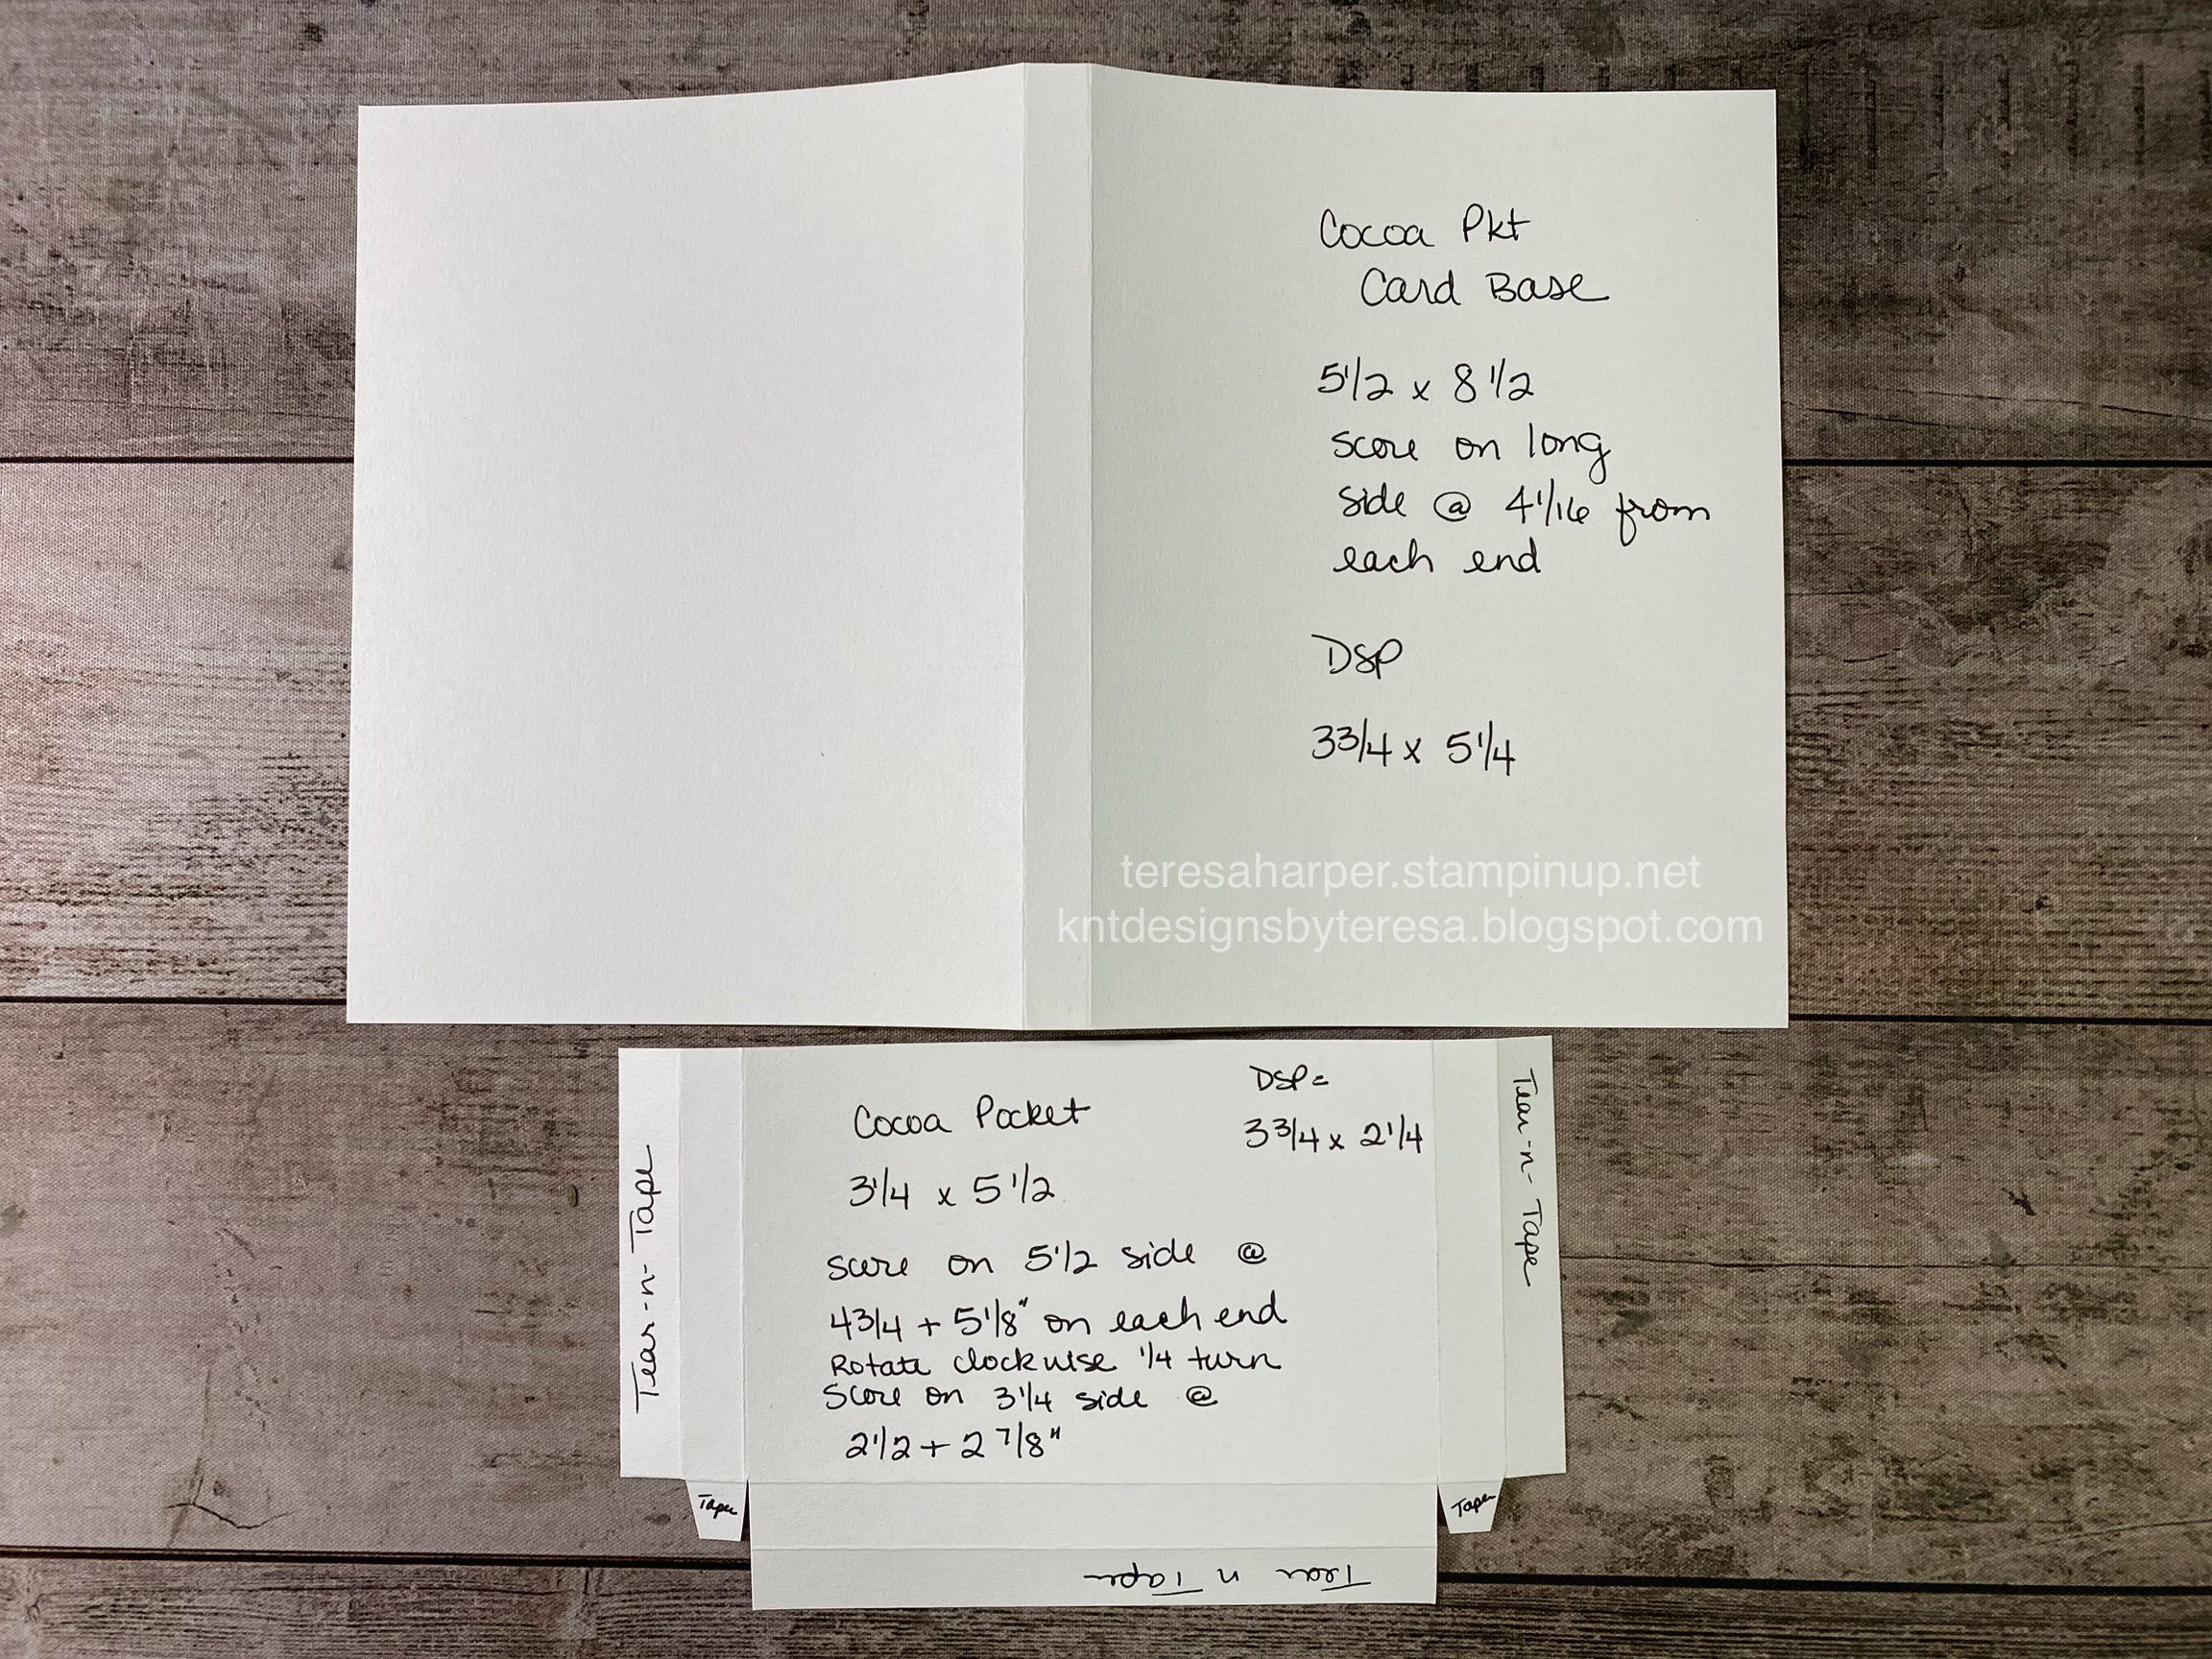 Cocoa Pkt
Card Base
5 1/2 x 8 1/2
score on long
side @ 4 1/16 from
each end
DSP
3 3/4 x 5 1/4
teresaharper.stampinup.net
kntdesignsbyteresa.blogspot.com
DSP=
3 3/4 x 2 1/4
Cocoa Pocket
3 1/4 x 5 1/2
score on 5 1/2 side @
4 3/4 + 5 1/8" on each end
Rotate clockwise 1/4 turn
Score on 3 1/4 side @
2 1/2 + 2 7/8"
Tear-n-Tape
Tear-n-Tape
Tape
Tape
Tear n Tape